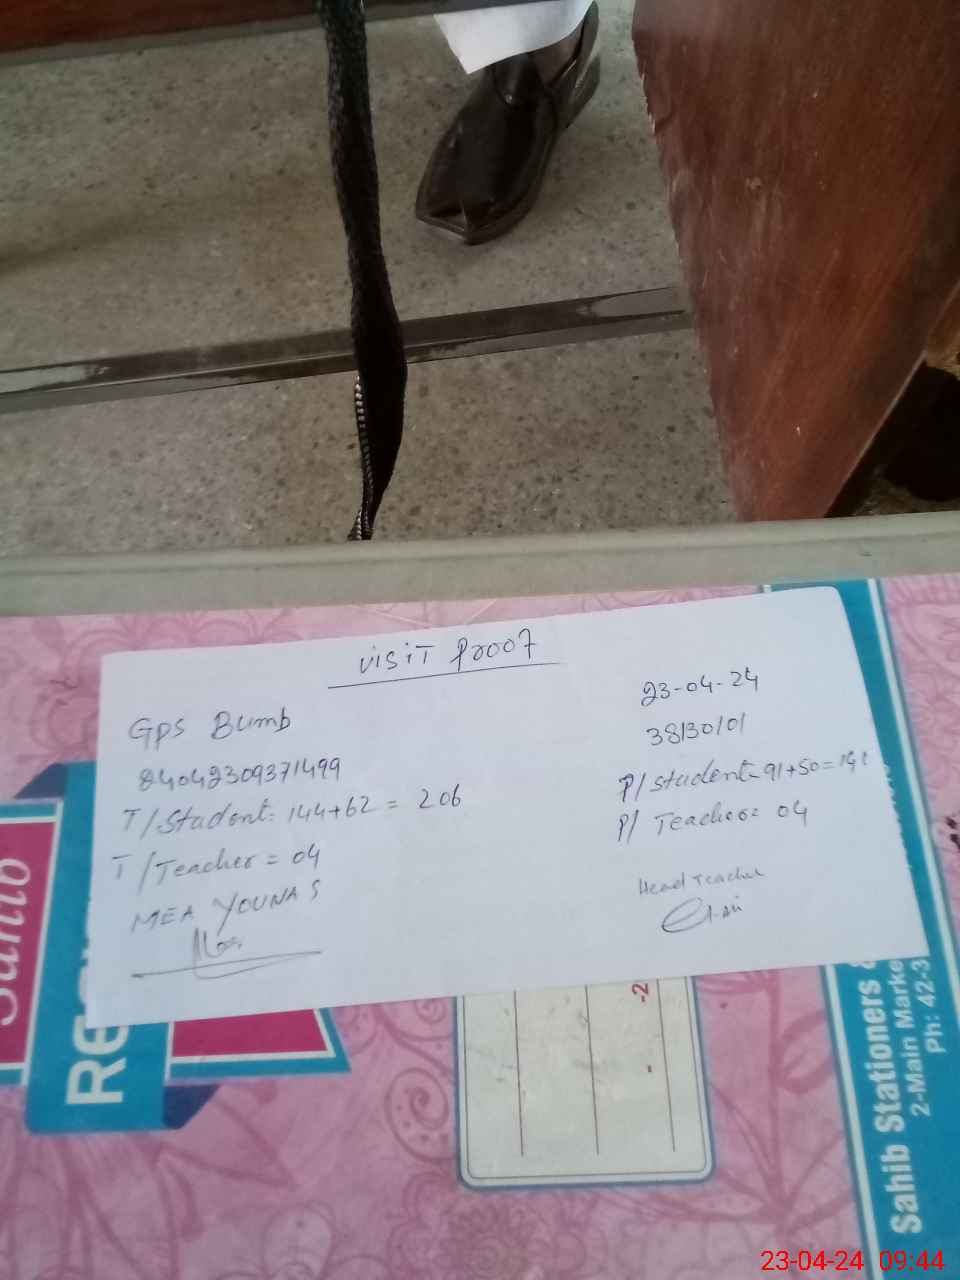 VISIT Proof
GPS Bumb
23-04-24
38130101
84042309371499
T/Student: 144+62 = 206
P/Student = 91+50=141
T/Teacher = 04
P/ Teacher = 04
MEA YOUNAS
Head Teacher
Sahib
Sahib Stationers &
2-Main Marke
Ph: 42-3
-2
23-04-24 09:44